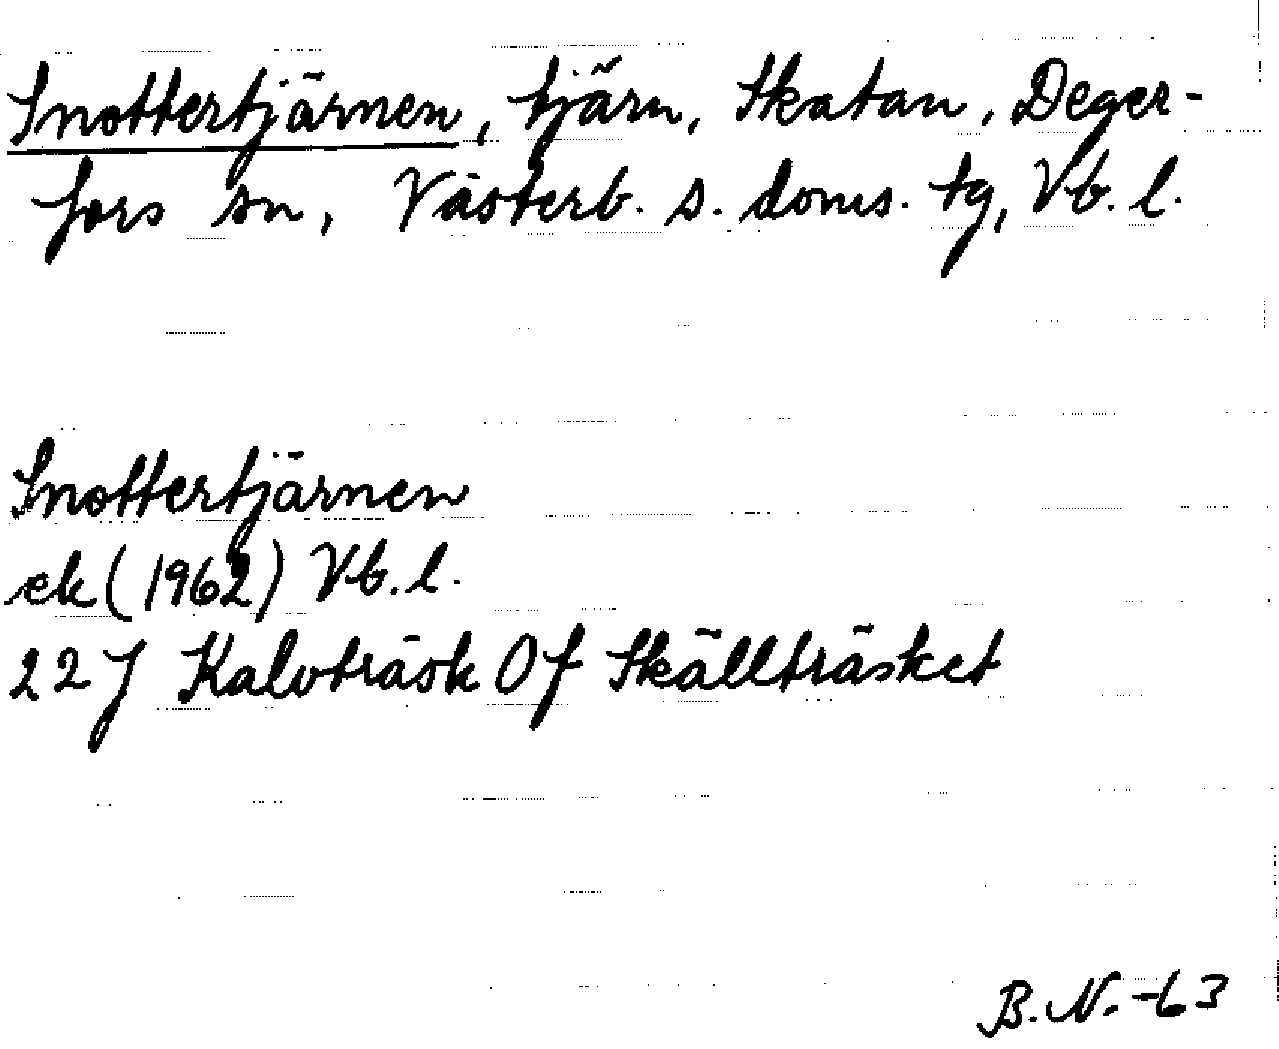 Snottertjärnen, tjärn, Skatan, Deger-
fors sn, Västerb. s. doms. tg, Vb. l.
Snottertjärnen
ek (1962) Vb. l.
22 J Kalvträsk 0f Skällträsket
B. N. -63